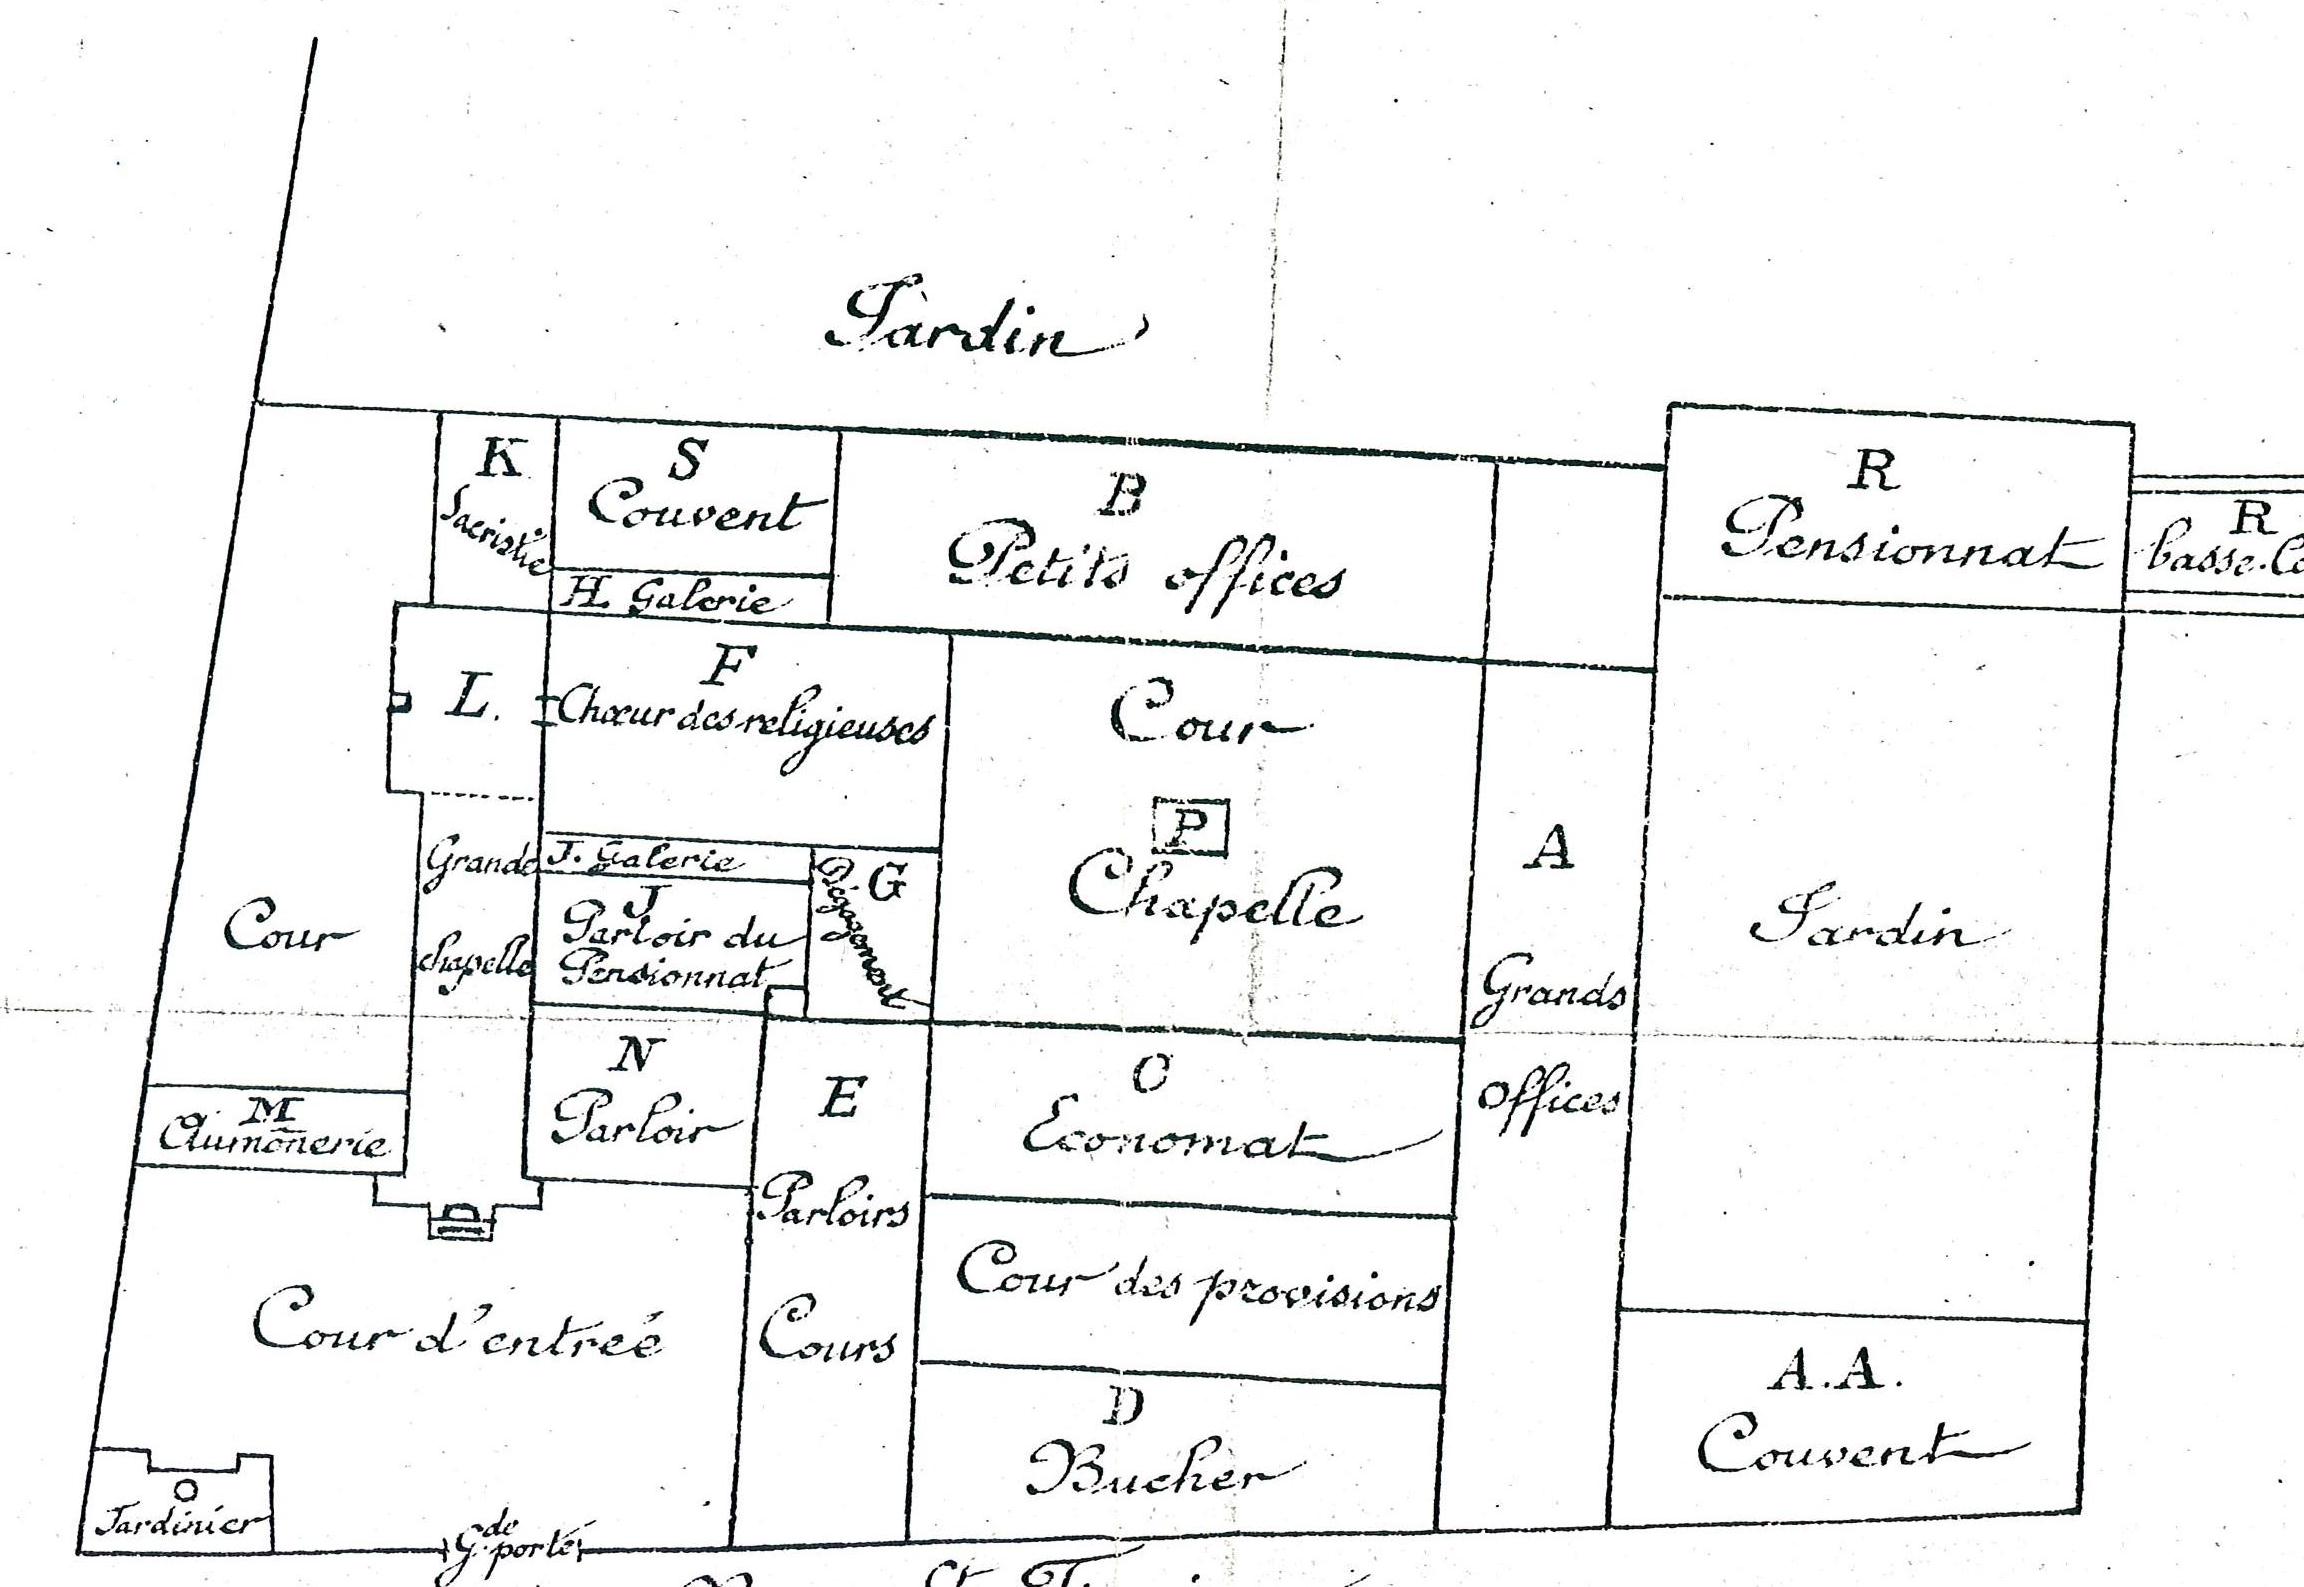 Jardin
K
Sacristie
S
Couvent
H. Galerie
B
Petits offices
R
Pensionnat
R
L.
F
Chœur des religieuses
Cour
P
Chapelle
Grande
chapelle
J. Galerie
J
Parloir du
Pensionnat
G
Dégagement
A
Grands
Offices
Jardin
Cour
M
Aumônerie
N
Parloir
E
Parloirs
Cours
C
Economat
Cour des provisions
D
Bucher
A.A.
Couvent
Cour d'entrée
O
Jardinier
Gde porte